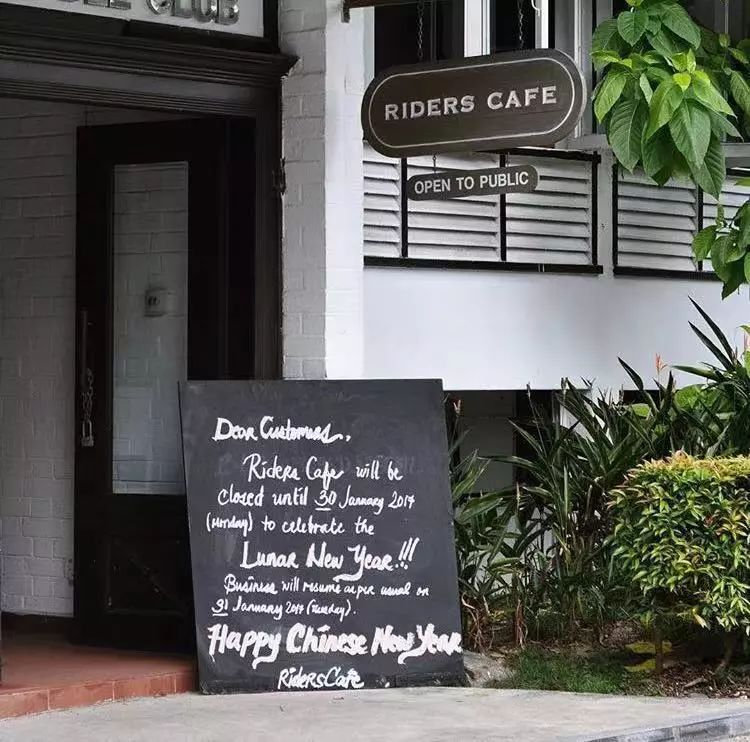 CLUB
RIDERS CAFE
OPEN TO PUBLIC
Dear Customers,
Riders Cafe will be
closed until 30 January 2017
(Monday) to celebrate the
Lunar New Year!!!
Business will resume as per usual on
31 January 2017 (Tuesday).
Happy Chinese New Year
Riders Cafe